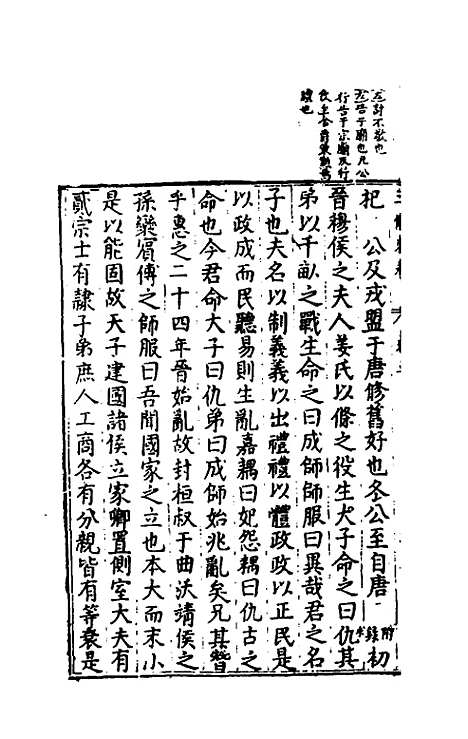 左討不敬也
左告于廟也凡公
行告于宗廟反行
飲至舍爵策勲焉
禮也
杞　公及戎盟于唐修舊好也冬公至自唐　附錄左初
晉穆侯之夫人姜氏以條之役生大子命之曰仇其
弟以千畝之戰生命之曰成師師服曰異哉君之名
子也夫名以制義義以出禮禮以體政政以正民是
以政成而民聽易則生亂嘉耦曰妃怨耦曰仇古之
命也今君命大子曰仇弟曰成師始兆亂矣兄其替
乎惠之二十四年晉始亂故封桓叔于曲沃靖侯之
孫欒賔傅之師服曰吾聞國家之立也本大而末小
是以能固故天子建國諸侯立家卿置側室大夫有
貳宗士有隷子弟庶人工商各有分親皆有等衰是